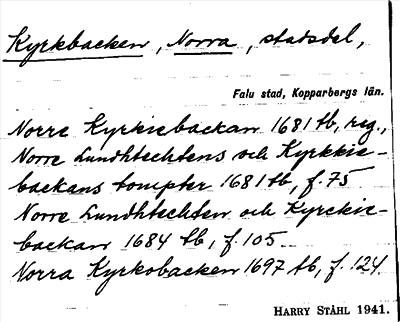 Kyrkbacken, Norra, stadsdel,
Falu stad, Kopparbergs län.
Norre Kyrkiebackan 1681 tb, reg.,
Norre Lundhtechtens och Kyrkkie-
backans tompter 1681 tb, f. 75.
Norre Lundhtechten och Kyrckie-
backan 1684 tb, f. 105.
Norra Kyrkobacken 1697 tb, f. 124.
HARRY STÅHL 1941.